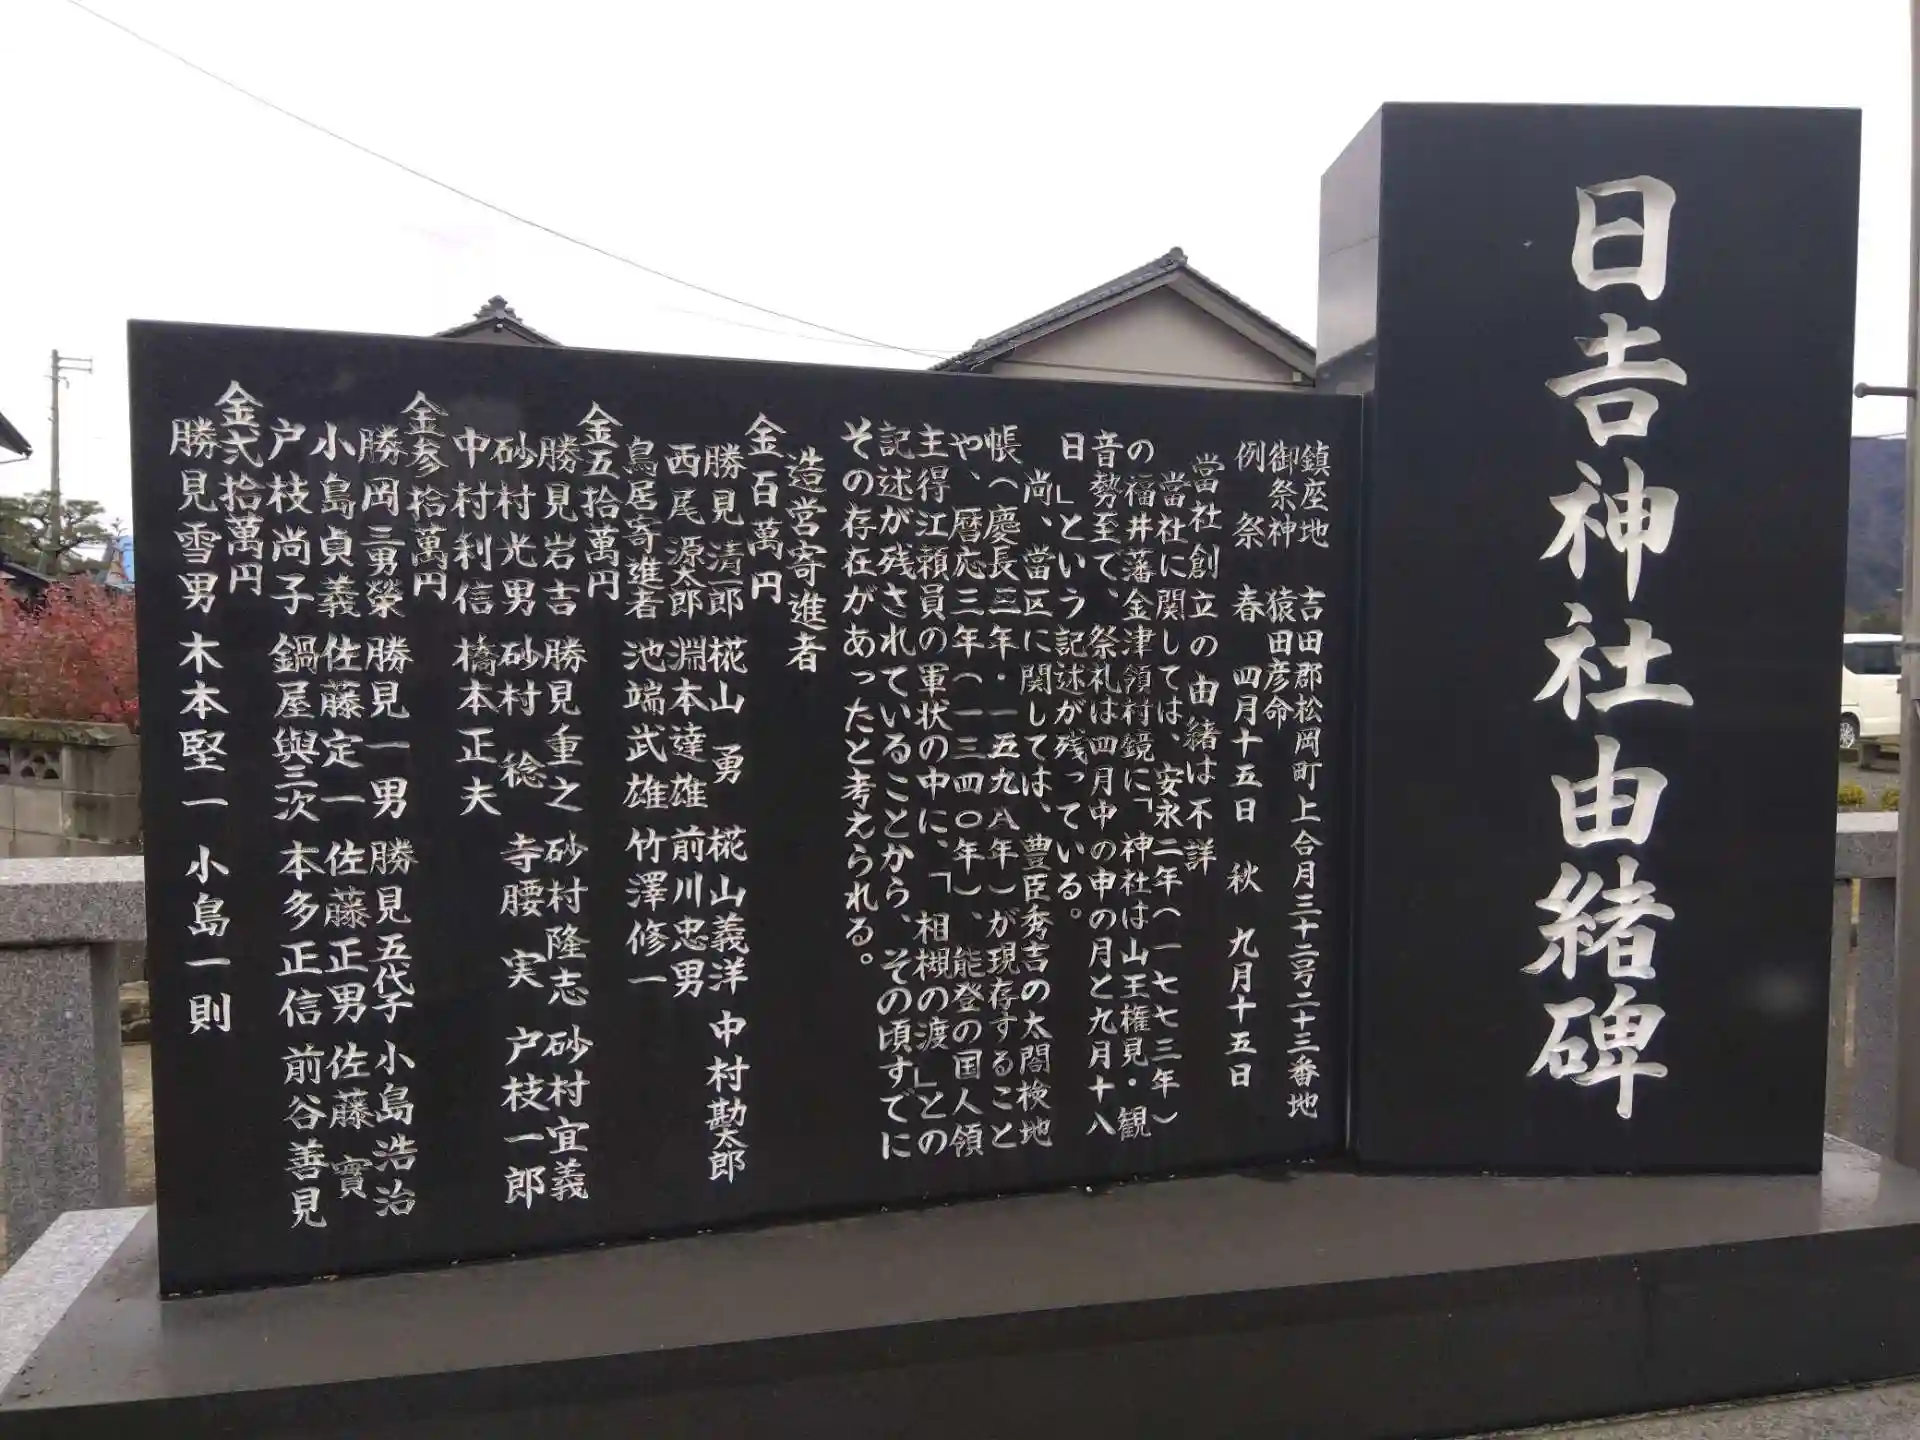 日吉神社由緒碑
鎮座地 吉田郡松岡町上合月三十二号二十三番地
御祭神 猿田彦命
例祭 春 四月十五日 秋 九月十五日
當社創立の由緒は不詳
當社に関しては、安永二年(一七七三年)
の福井藩金津領村鏡に「神社は山王権見・観
音勢至て、祭礼は四月中の申の月と九月十八
日」という記述が残っている。
尚、當区に関しては、豊臣秀吉の太閤検地
帳(慶長三年・一五九八年)が現存すること
や、暦応三年(一三四〇年)、能登の国人領
主得江頼員の軍状の中に、「相槻の渡」との
記述が残されていることから、その頃すでに
その存在があったと考えられる。
造営寄進者
金百萬円
勝見清一郎 椛山 勇 椛山義洋 中村勘太郎
西尾源太郎 淵本達雄 前川忠男
鳥居寄進者 池端武雄 竹澤修一
金五拾萬円
勝見岩吉 勝見重之 砂村隆志 砂村宜義
砂村光男 砂村 稔 寺腰 実 戸枝一郎
中村利信 橋本正夫
金参拾萬円
勝岡三男榮 勝見一男 勝見五代子 小島浩治
小島貞義 佐藤定一 佐藤正男 佐藤 實
戸枝尚子 鍋屋與三次 本多正信 前谷善見
金弐拾萬円
勝見雪男 木本堅一 小島一則